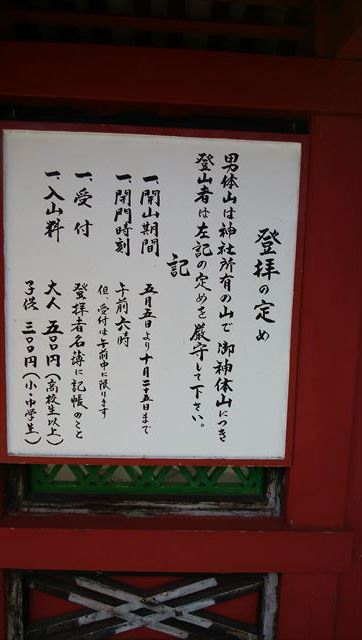 登拝の定め
男体山は神社所有の山で御神体山につき
登山者は左記の定めを厳守して下さい。
記
一、開山期間 五月五日より十月二十五日まで
一、開門時刻 午前六時
但、受付は午前中に限ります
一、受付 登拝者名簿に記帳のこと
一、入山料 大人 五〇〇円(高校生以上)
子供 三〇〇円(小・中学生)